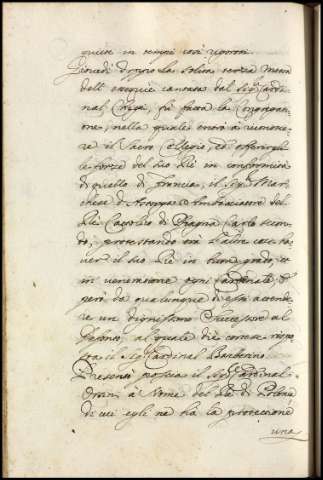 quiete in tempi così torbidi.
Giovedì doppo la solita terza Messa
dell' esequie cantata dal Sig.r Cardi-
nal Chigi, fù fatta la Congregazi-
one, nella quale entrò à riueri-
re il Sacro Collegio, ed offerirgli
le forze del suo Rè in conformità
di quello di Francia, il Sig.r Mar-
chese d' Astorga Ambasciatore del
Rè Cattolico di Spagna Carlo secon-
do, protestando trà l'altre cose ha-
ver il suo Rè in buon grado, et
in veneratione ogni Cardinale, e
però da qualunque di essi attende-
re un dignissimo Successore al
Defonto, al quale diè cortese rispo-
sta il Sig.r Cardinal Barberino
Presentò poscia il Sig.r Cardinal
Orsini à nome del Rè di Polonia
di cui egli ne hà la protezzione
una